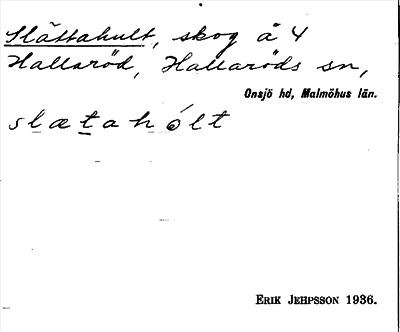 Slättahult, skog å 4
Hallaröd, Hallaröds sn,
Onsjö hd, Malmöhus län.
slætahólt
ERIK JEHPSSON 1936.